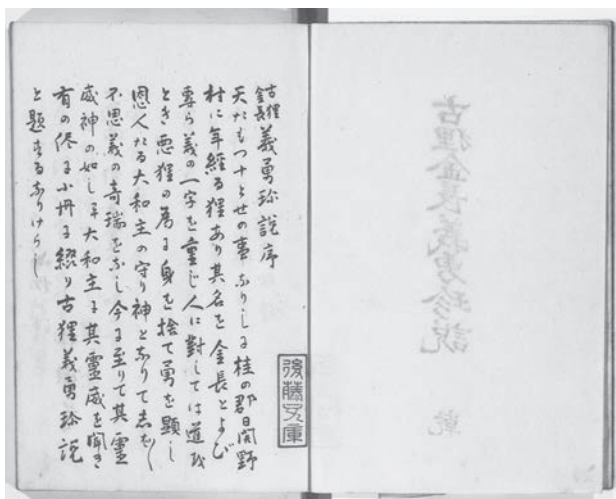 古狸金長義勇珍説 乾
古狸
金長 義勇珍説序
天たもつ十とせの事なりしに桂の郡日開野
村に年経る狸あり其名を金長とよび
専ら義の一字を重じ人に対しては道
とき悪狸の為に身を捨て勇を顕し
恩人たる大和主の守り神となりて
不思義の奇瑞をなし今に至りて其霊
威神の如し 大和主に其霊威を聞き
有の侭に小冊に綴り古狸義勇珍説
と題するなりけらし
後藤文庫